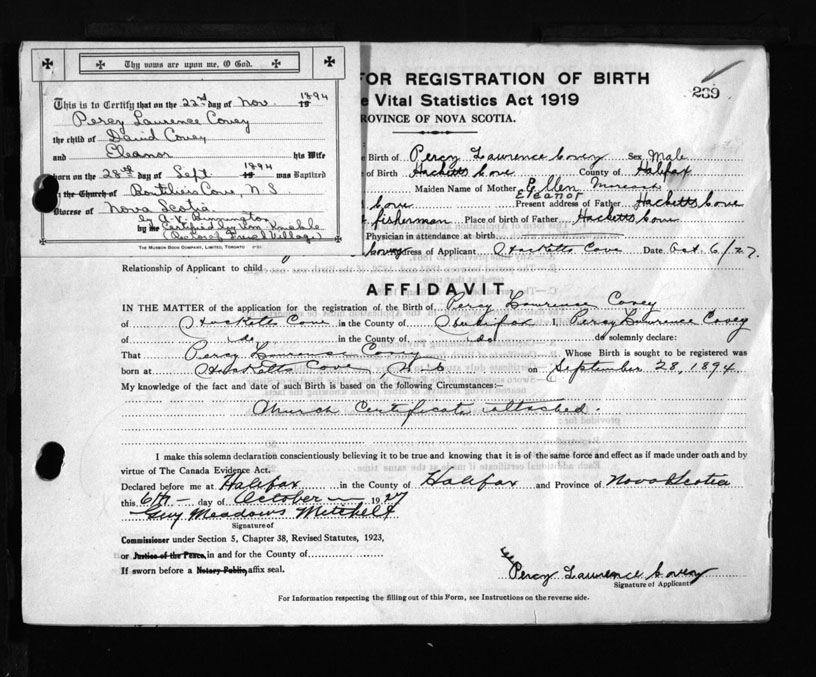 Thy vows are upon me, O God.
This is to Certify that on the 22nd day of Nov. 1894
Percy Laurence Covey
the child of David Covey
and Eleanor his Wife
born on the 28th day of Sept 1894 was Baptized
in the Church of Boutiliers Cove, N.S
Diocese of Nova Scotia
by A. K.
by the Certified by Wm.
(Rector of French Village)
THE MUSSON BOOK COMPANY, LIMITED, TORONTO
FOR REGISTRATION OF BIRTH
e Vital Statistics Act 1919
ROVINCE OF NOVA SCOTIA.
239
e Birth of Percy Lawrence Covey Sex Male
of Birth Hacketts Cove County of Halifax
Maiden Name of Mother Ellen
Eleanor
Cove Present address of Father Hacketts Cove
fisherman Place of birth of Father Hacketts Cove
Physician in attendance at birth
ress of Applicant Hacketts Cove Date Oct. 6/27.
Relationship of Applicant to child
AFFIDAVIT
IN THE MATTER of the application for the registration of the Birth of Percy Lawrence Covey
of Hacketts Cove in the County of Halifax I, Percy Lawrence Covey
of do in the County of do do solemnly declare:
That Percy Lawrence Covey Whose Birth is sought to be registered was
born at Hacketts Cove, N.S on September 28, 1894
My knowledge of the fact and date of such Birth is based on the following Circumstances:—
Church Certificate attached.
I make this solemn declaration conscientiously believing it to be true and knowing that it is of the same force and effect as if made under oath and by
virtue of The Canada Evidence Act.
Declared before me at Halifax in the County of Halifax and Province of Nova Scotia
this 6th day of October 1927
Guy Meadows Mitchell
Signature of
Commissioner under Section 5, Chapter 38, Revised Statutes, 1923,
or Justice of the Peace, in and for the County of
If sworn before a Notary Public, affix seal.
Percy Lawrence Covey
Signature of Applicant
For Information respecting the filling out of this Form, see Instructions on the reverse side.